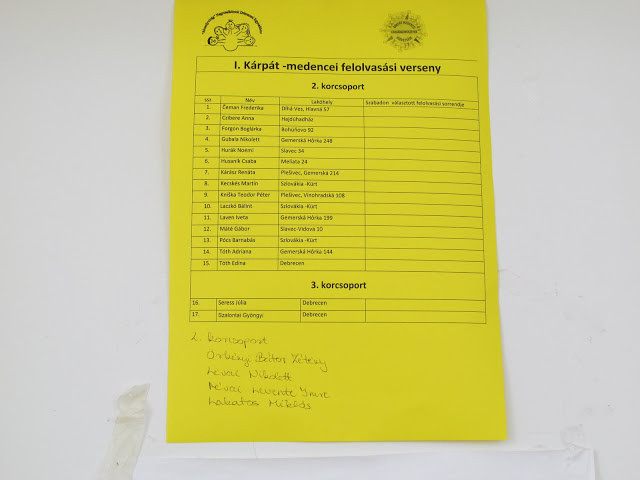 I. Kárpát -medencei felolvasási verseny
2. korcsoport
ssz. Név Lakóhely Szabadon választott felolvasási sorrendje
1. Čeman Frederika Dlhá Ves, Hlavná 57
2. Czibere Anna Hajdúhadház
3. Forgon Boglárka Bohúňovo 92
4. Gubala Nikolett Gemerská Hôrka 248
5. Hurák Noémi Slavec 34
6. Husaník Csaba Meliata 24
7. Kárász Renáta Plešivec, Gemerská 214
8. Kecskés Martin Szlovákia -Kürt
9. Kniška Teodor Péter Plešivec, Vinohradská 108
10. Laczkó Bálint Szlovákia -Kürt
11. Laven Iveta Gemerská Hôrka 199
12. Máté Gábor Slavec-Vidová 10
13. Pócs Barnabás Szlovákia -Kürt
14. Tóth Adriana Gemerská Hôrka 144
15. Tóth Edina Debrecen
3. korcsoport
16. Seress Júlia Debrecen
17. Szalontai Gyöngyi Debrecen
2. korcsoport
Örkényi Bátor Zétény
Lévai Nikolett
Lévai Levente Imre
Lakatos Miklós